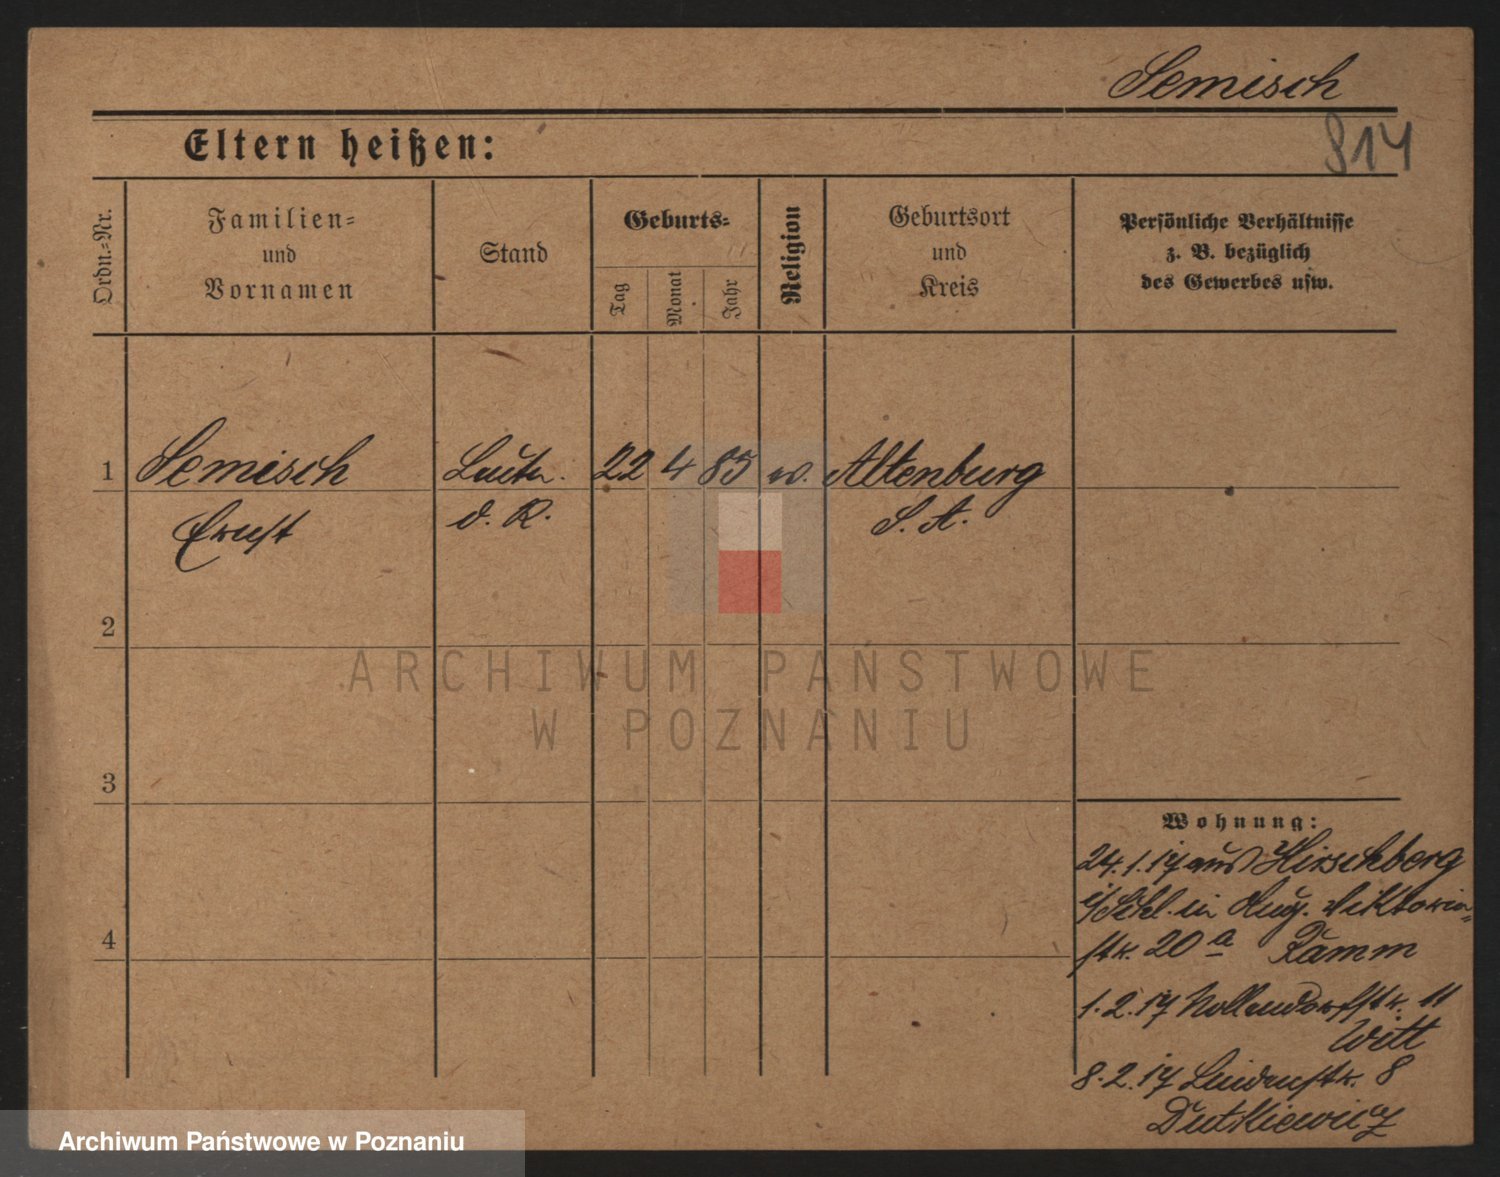 Semisch
814
Eltern heißen:
Ordn.-Nr.
Familien-
und
Vornamen
Stand
Geburts-
Tag
Monat
Jahr
Religion
Geburtsort
und
Kreis
Persönliche Verhältnisse
z. B. bezüglich
des Gewerbes usw.
1 Semisch Leutn. 22 4 85 ev. Altenburg
Ernst d. R. S. A.
2
3
4
Wohnung:
24.1.17 aus Hirschberg
i/Schl. in Aug. Viktoria-
str. 20 a Ramm
1.2.17 Nollendorfstr. 11
Witt
8.2.17 Lindenstr. 8
Dutkiewicz
ARCHIWUM PAŃSTWOWE
W POZNANIU
Archiwum Państwowe w Poznaniu